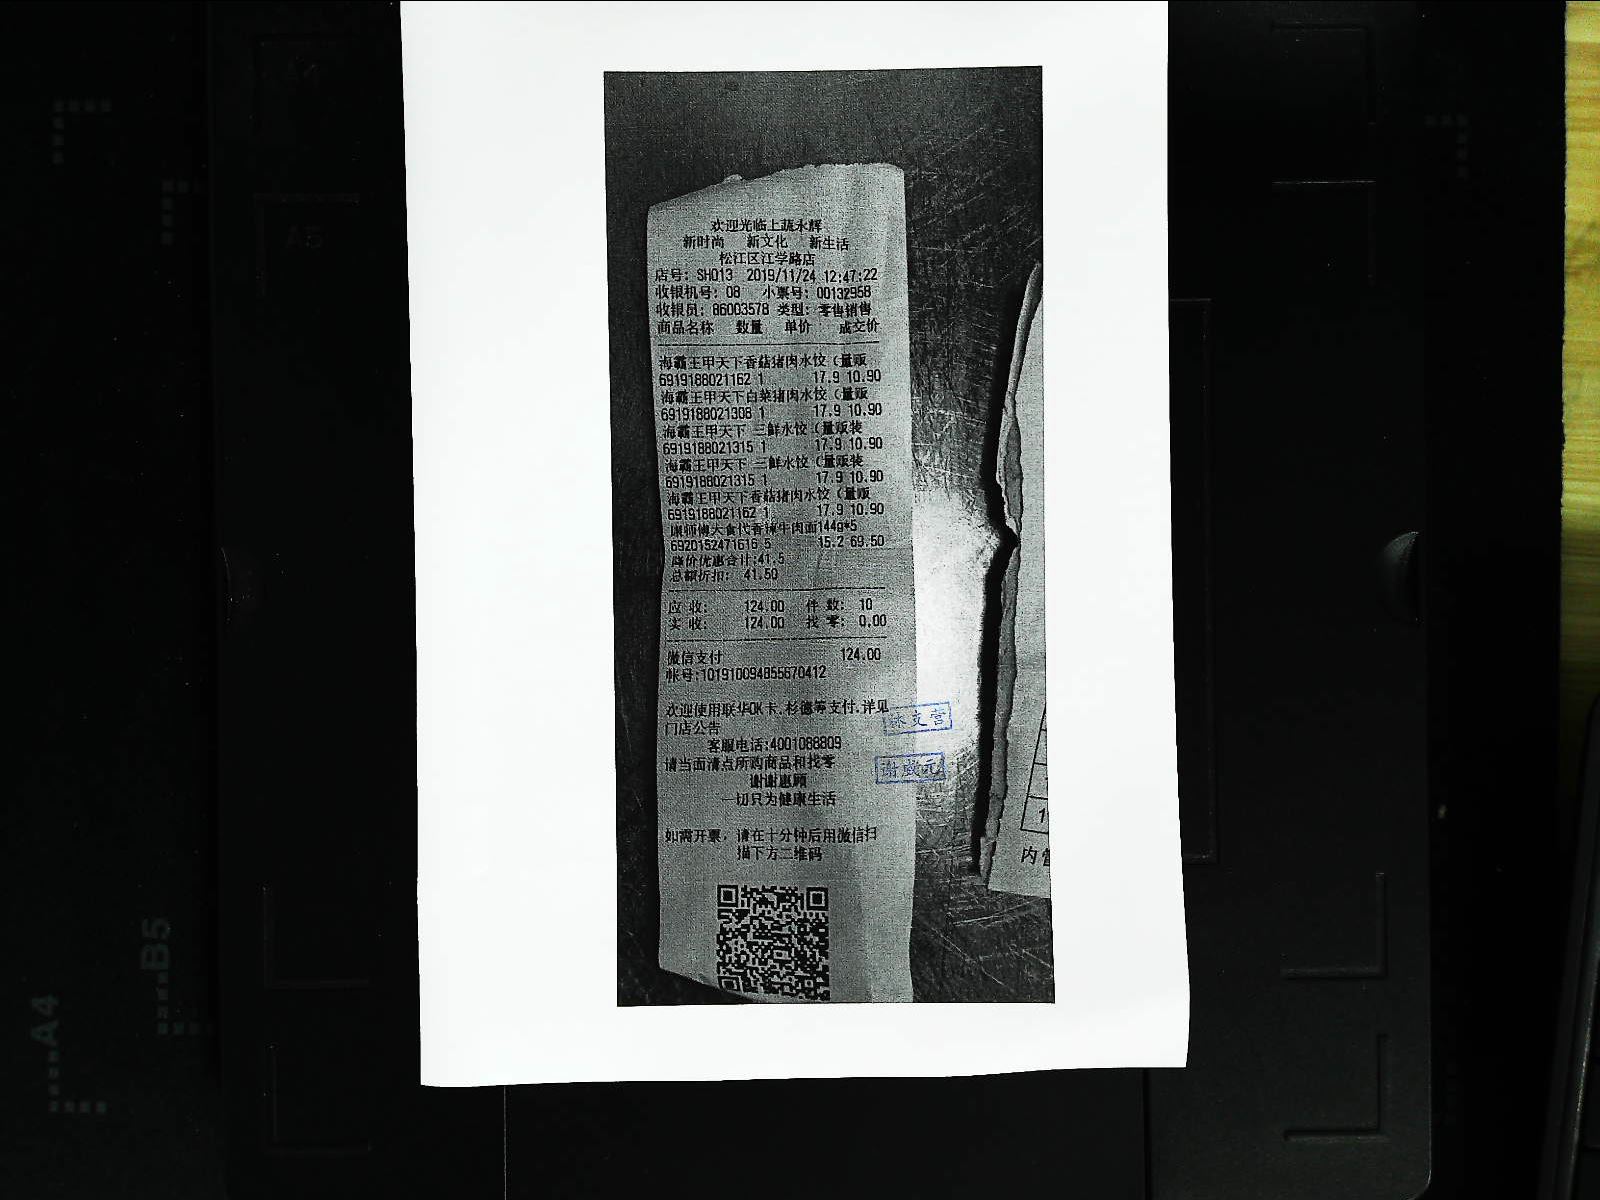 欢迎光临上蔬永辉
新时尚 新文化 新生活
松江区江学路店
店号: SH013 2019/11/24 12:47:22
收银机号: 08 小票号: 00132958
收银员: 86003578 类型: 零售销售
商品名称 数量 单价 成交价
海霸王甲天下香菇猪肉水饺(量贩
6919188021162 1 17.9 10.90
海霸王甲天下白菜猪肉水饺(量贩
6919188021308 1 17.9 10.90
海霸王甲天下 三鲜水饺(量贩装
6919188021315 1 17.9 10.90
海霸王甲天下 三鲜水饺(量贩装
6919188021315 1 17.9 10.90
海霸王甲天下香菇猪肉水饺(量贩
6919188021162 1 17.9 10.90
康师傅大食代香辣牛肉面144g*5
6920152471616 5 15.2 69.50
降价优惠合计:41.5
总额折扣: 41.50
应 收: 124.00 件 数: 10
实 收: 124.00 找 零: 0.00
微信支付 124.00
帐号:101910094855670412
欢迎使用联华OK卡,杉德等支付.详见
门店公告
客服电话:4001088809
请当面清点所购商品和找零
谢谢惠顾
一切只为健康生活
如需开票，请在十分钟后用微信扫
描下方二维码
A5
B5
A4